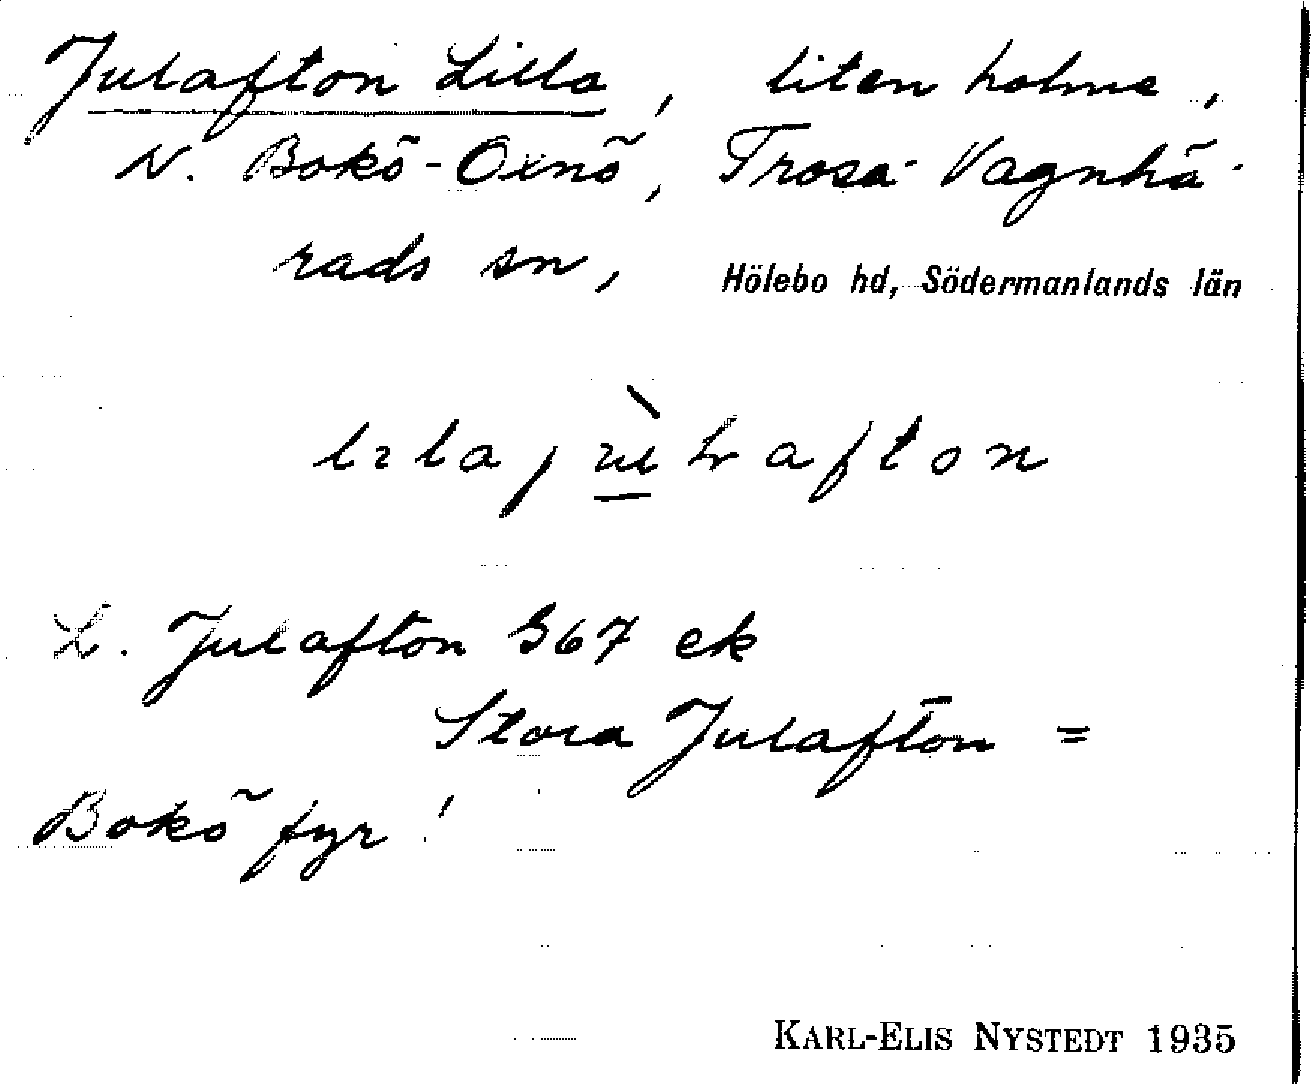 Julafton Lilla, liten holme,
N. Bokö-Oxnö, Trosa-Vagnhä-
rads sn, Hölebo hd, Södermanlands län
L. Julafton 567 ek
Stora Julafton =
Bokö fyr!
KARL-ELIS NYSTEDT 1935